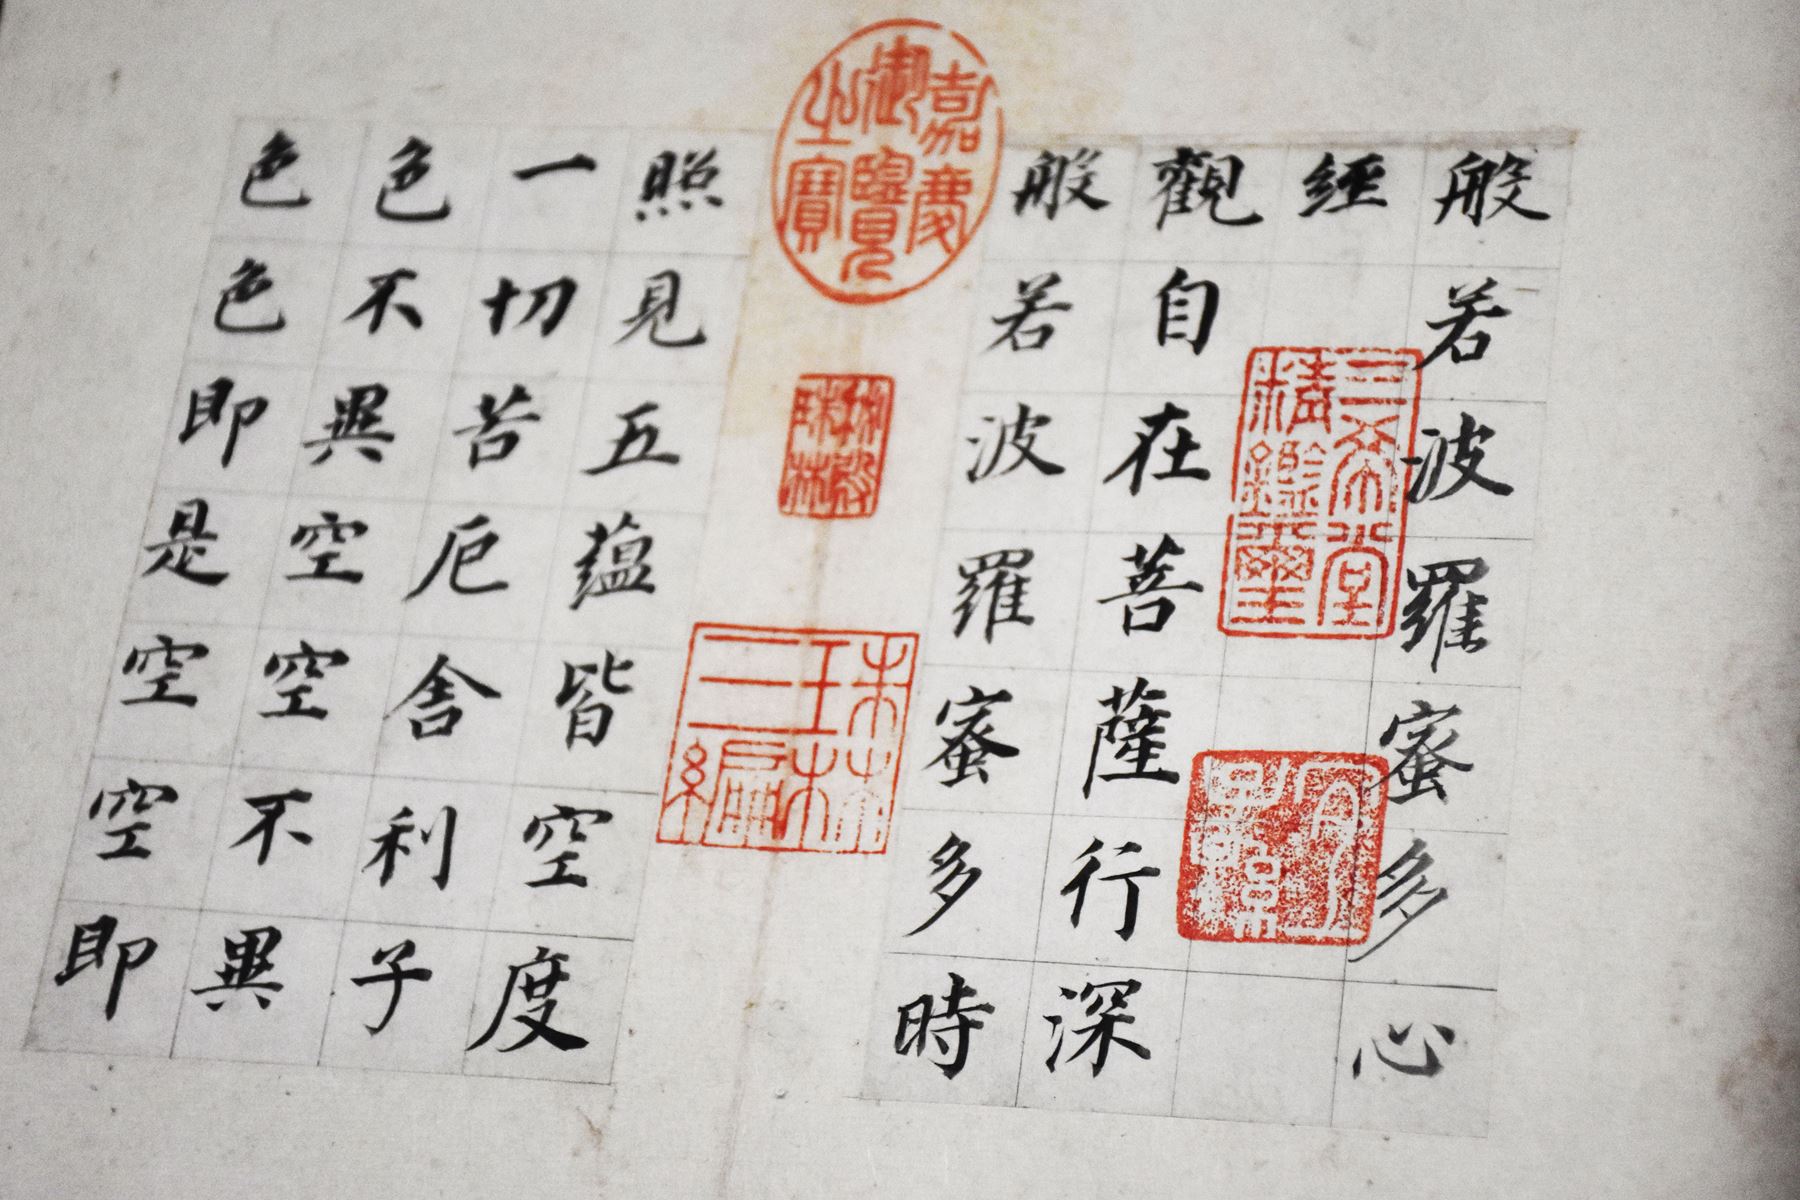 般若波羅蜜多心
經
觀自在菩薩行深
般若波羅蜜多時
照見五蘊皆空度
一切苦厄舍利子
色不異空空不異
色色即是空空即
嘉慶御覽之寶
三希堂精鑑璽
秘殿珠林
珠林三編